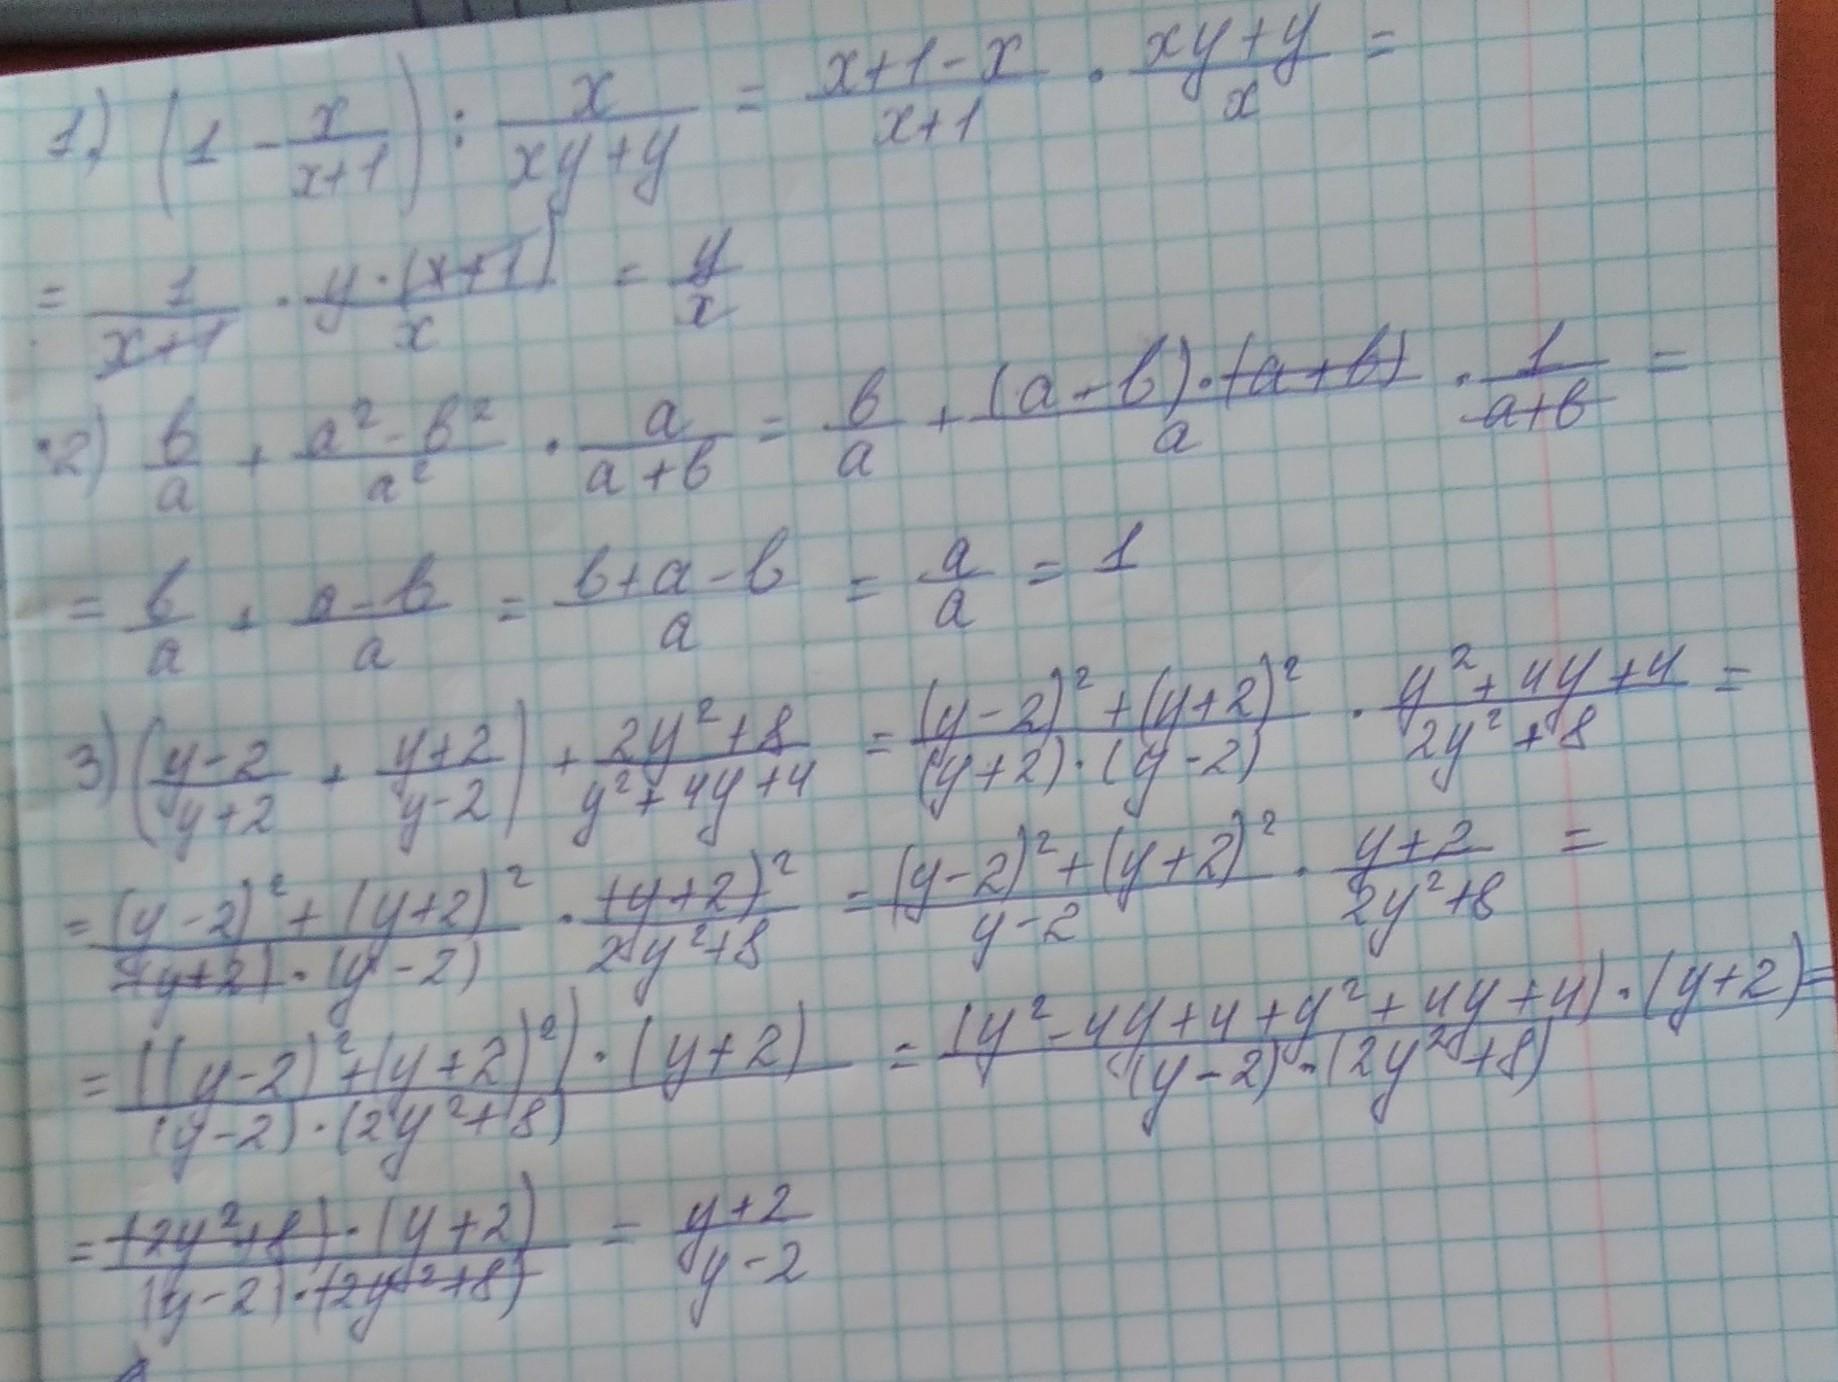 1.) (1 - x/(x+1)) : x/(xy+y) = (x+1-x)/(x+1) · (xy+y)/x =
= 1/(x+1) · (y·(x+1))/x = y/x
2) b/a + (a² - b²)/a² · a/(a+b) = b/a + ((a-b)·(a+b))/a · 1/(a+b) =
= b/a + (a-b)/a = (b+a-b)/a = a/a = 1
3) ((y-2)/(y+2) + (y+2)/(y-2)) + (2y²+8)/(y²+4y+4) = ((y-2)²+(y+2)²)/((y+2)·(y-2)) · (y²+4y+4)/(2y²+8) =
= ((y-2)²+(y+2)²)/((y+2)·(y-2)) · (y+2)²/(2y²+8) = ((y-2)²+(y+2)²)/(y-2) · (y+2)/(2y²+8) =
= (((y-2)²+(y+2)²)·(y+2))/((y-2)·(2y²+8)) = ((y²-4y+4+y²+4y+4)·(y+2))/((y-2)·(2y²+8)) =
= ((2y²+8)·(y+2))/((y-2)·(2y²+8)) = (y+2)/(y-2)